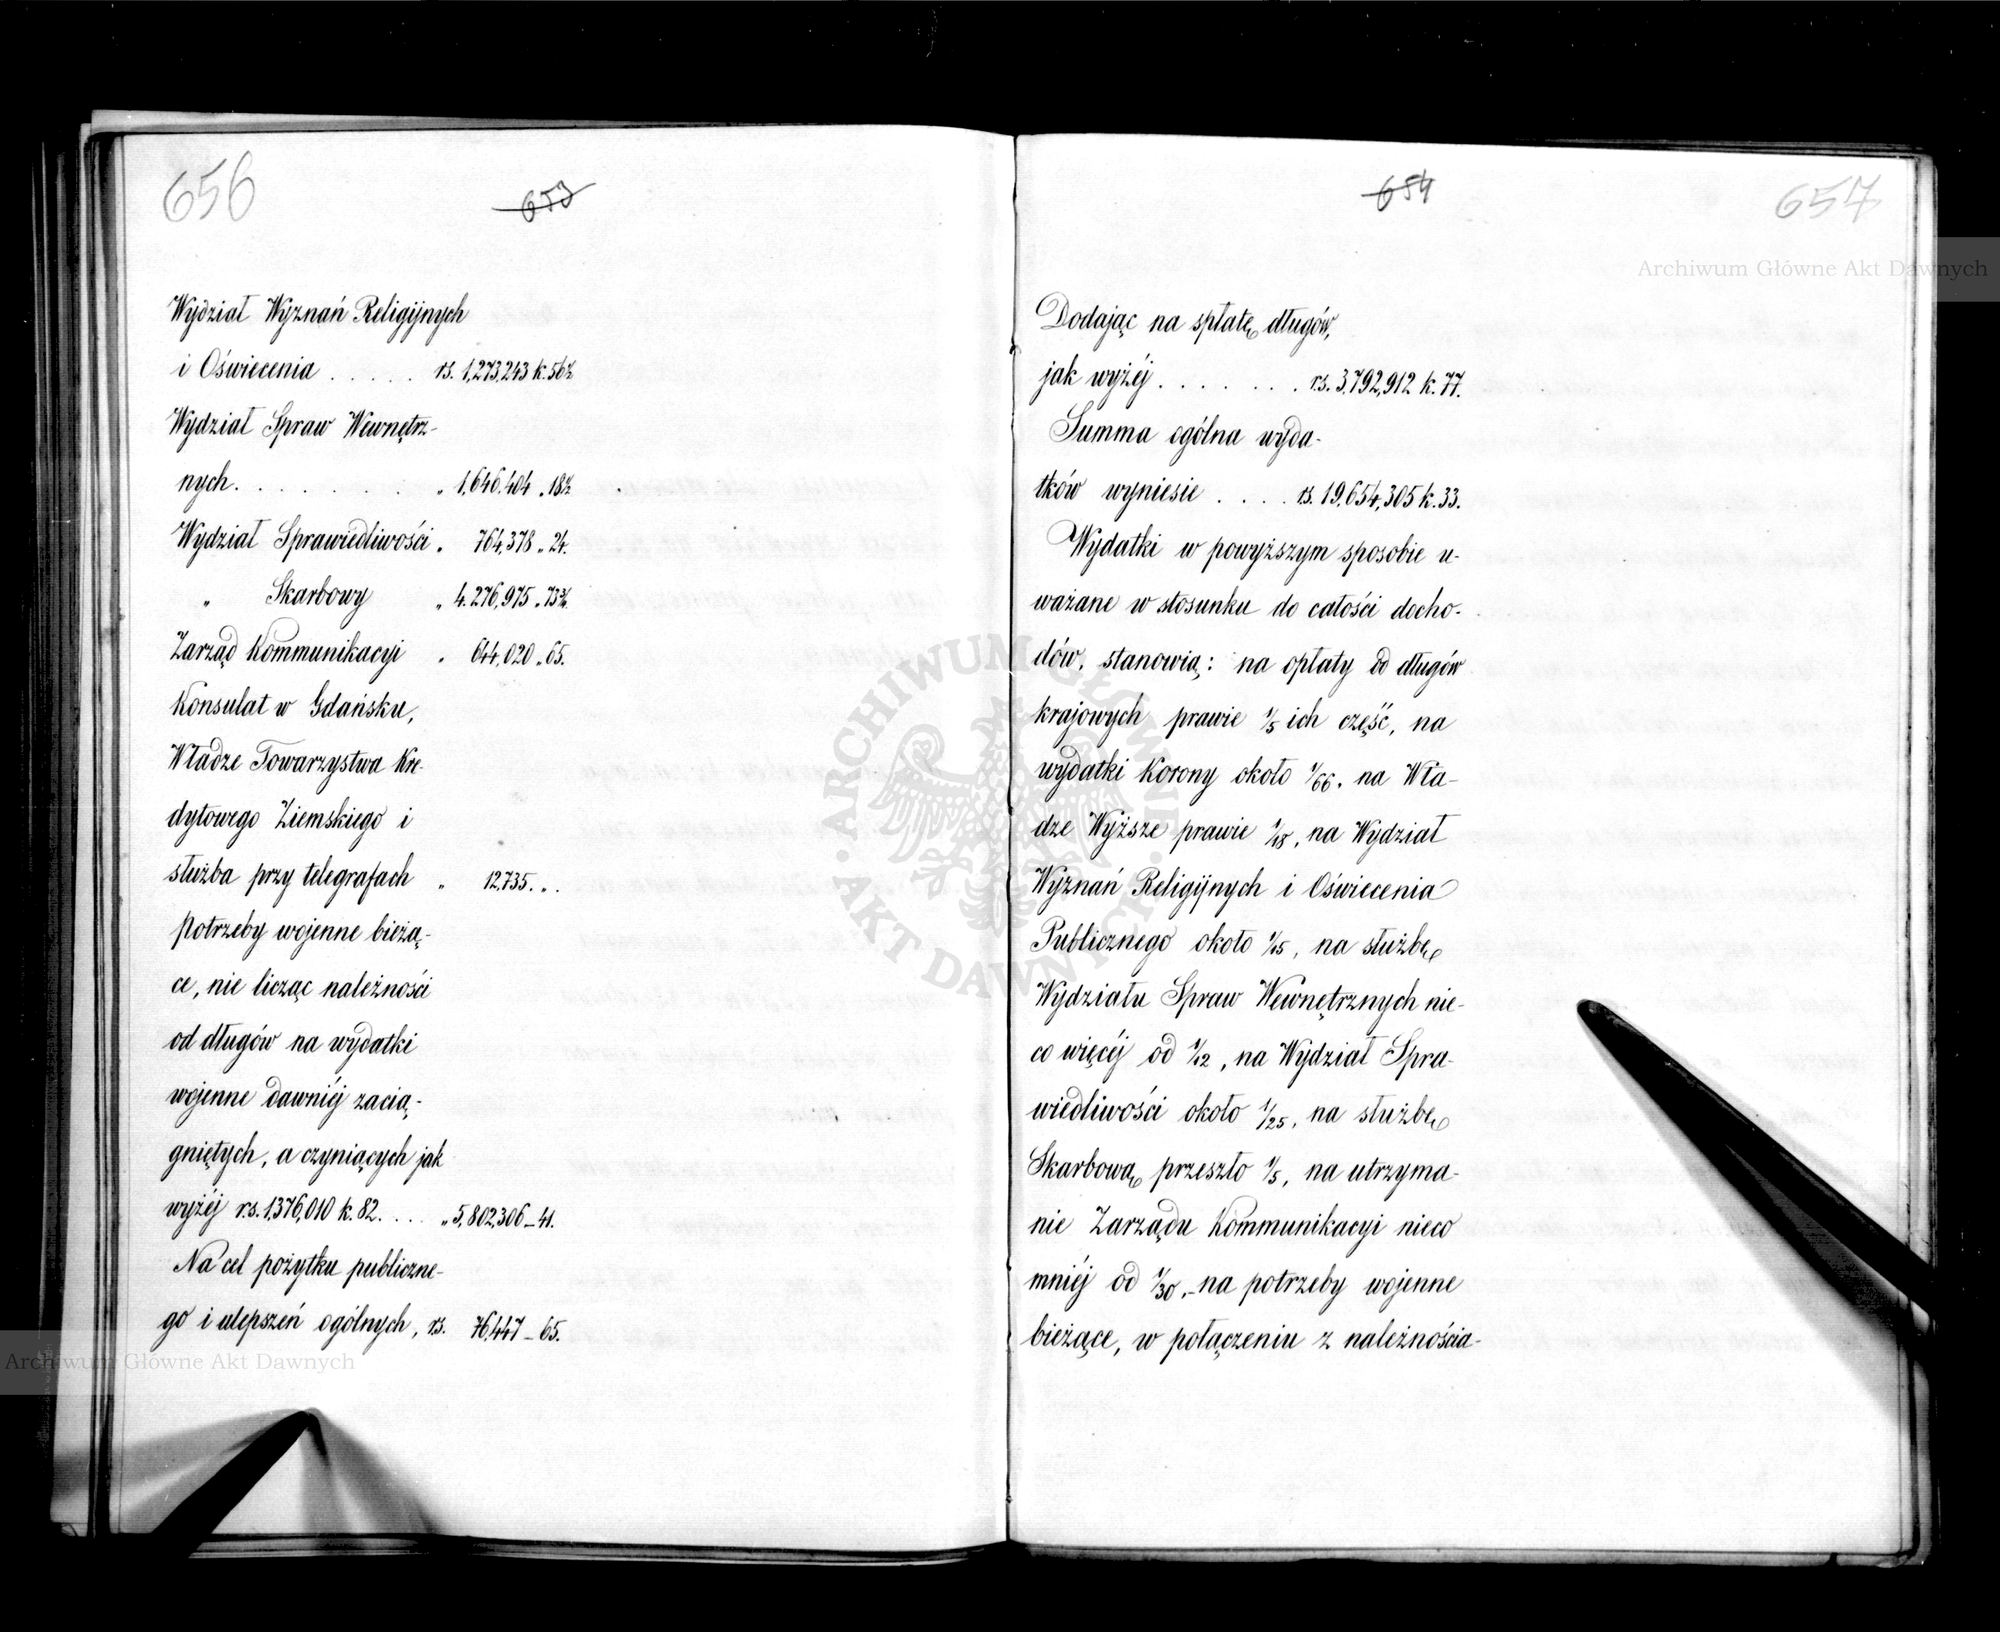 656
653
Wydział Wyznań Religijnych
i Oświecenia . . . . . rs. 1,273,243 k. 56½
Wydział Spraw Wewnętrz-
nych. . . . . . . . „ 1,646,404 „ 18½
Wydział Sprawiedliwości „ 764,378 „ 24.
„ Skarbowy „ 4.276,975 „ 73½.
Zarząd Kommunikacyi „ 644,020 „ 65.
Konsulat w Gdańsku,
Władze Towarzystwa Kre-
dytowego Ziemskiego i
służba przy telegrafach „ 12,735. „ .
potrzeby wojenne bieżą-
ce, nie licząc należności
od długów na wydatki
wojenne dawniéj zacią-
gniętych, a czyniących jak
wyżéj rs. 1,376,010 k. 82. . . . „ 5,802,306 – 41.
Na cel pożytku publiczne-
go i ulepszeń ogólnych, rs. 76,447 – 65.
654
657
Dodając na spłatę długów,
jak wyżéj . . . . . . . rs. 3,792,912 k. 77.
Summa ogólna wyda-
tków wyniesie . . . . rs. 19,654,305 k. 33.
Wydatki w powyższym sposobie u-
ważane w stosunku do całości docho-
dów, stanowią: na opłaty od długów
krajowych prawie 1/5 ich część, na
wydatki Korony około 1/66, na Wła-
dze Wyższe prawie 1/18, na Wydział
Wyznań Religijnych i Oświecenia
Publicznego około 1/15, na służbę
Wydziału Spraw Wewnętrznych nie-
co więcéj od 1/12, na Wydział Spra-
wiedliwości około 1/25, na służbę
Skarbową przeszło 1/5, na utrzyma-
nie Zarządu Kommunikacyi nieco
mniéj od 1/30, – na potrzeby wojenne
bieżące, w połączeniu z należnościa-
Archiwum Główne Akt Dawnych
Archiwum Główne Akt Dawnych
ARCHIWUM GŁÓWNE AKT DAWNYCH